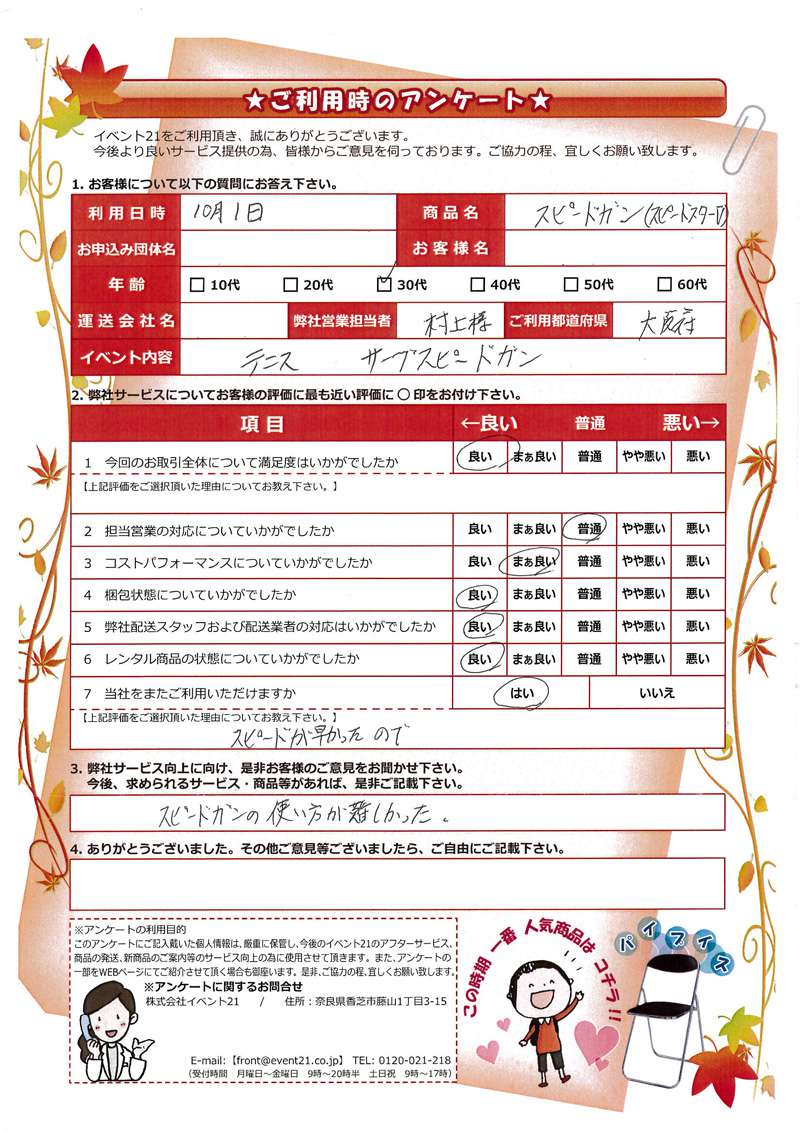 ★ご利用時のアンケート★
イベント21をご利用頂き、誠にありがとうございます。
今後より良いサービス提供の為、皆様からご意見を伺っております。ご協力の程、宜しくお願い致します。
1. お客様について以下の質問にお答え下さい。
利用日時 10月1日 商品名 スピードガン(スピードスターV)
お申込み団体名 お客様名
年齢 □10代 □20代 □30代 □40代 □50代 □60代
運送会社名 弊社営業担当者 村上様 ご利用都道府県 大阪府
イベント内容 テニス サーブスピードガン
2. 弊社サービスについてお客様の評価に最も近い評価に ○ 印をお付け下さい。
項目 ←良い 普通 悪い→
1 今回のお取引全体について満足度はいかがでしたか 良い まぁ良い 普通 やや悪い 悪い
【上記評価をご選択頂いた理由についてお教え下さい。】
2 担当営業の対応についていかがでしたか 良い まぁ良い 普通 やや悪い 悪い
3 コストパフォーマンスについていかがでしたか 良い まぁ良い 普通 やや悪い 悪い
4 梱包状態についていかがでしたか 良い まぁ良い 普通 やや悪い 悪い
5 弊社配送スタッフおよび配送業者の対応はいかがでしたか 良い まぁ良い 普通 やや悪い 悪い
6 レンタル商品の状態についていかがでしたか 良い まぁ良い 普通 やや悪い 悪い
7 当社をまたご利用いただけますか はい いいえ
【上記評価をご選択頂いた理由についてお教え下さい。】
スピードが早かったので
3. 弊社サービス向上に向け、是非お客様のご意見をお聞かせ下さい。
今後、求められるサービス・商品等があれば、是非ご記載下さい。
スピードガンの使い方が難しかった。
4. ありがとうございました。その他ご意見等ございましたら、ご自由にご記載下さい。
※アンケートの利用目的
このアンケートにご記入戴いた個人情報は、厳重に保管し、今後のイベント21のアフターサービス、
商品の発送、新商品のご案内等のサービス向上の為に使用させて頂きます。また、アンケートの
一部をWEBページにてご紹介させて頂く場合も御座います。是非、ご協力の程、宜しくお願い致します。
※アンケートに関するお問合せ
株式会社イベント21 / 住所：奈良県香芝市藤山1丁目3-15
E-mail:【front@event21.co.jp】 TEL: 0120-021-218
(受付時間 月曜日～金曜日 9時～20時半 土日祝 9時～17時)
この時期 一番 人気商品は コチラ!!
パイプイス